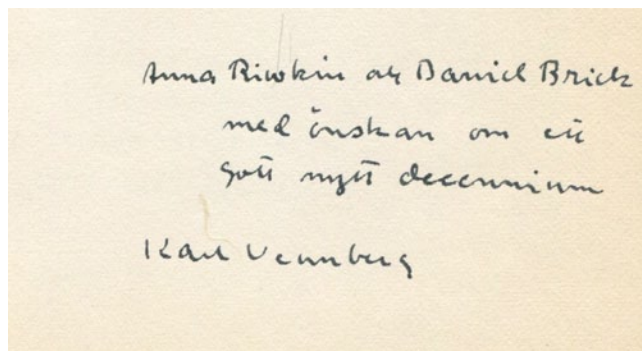 Anna Riwkin och Daniel Brick
med önskan om ett
gott nytt decennium
Karl Vennberg